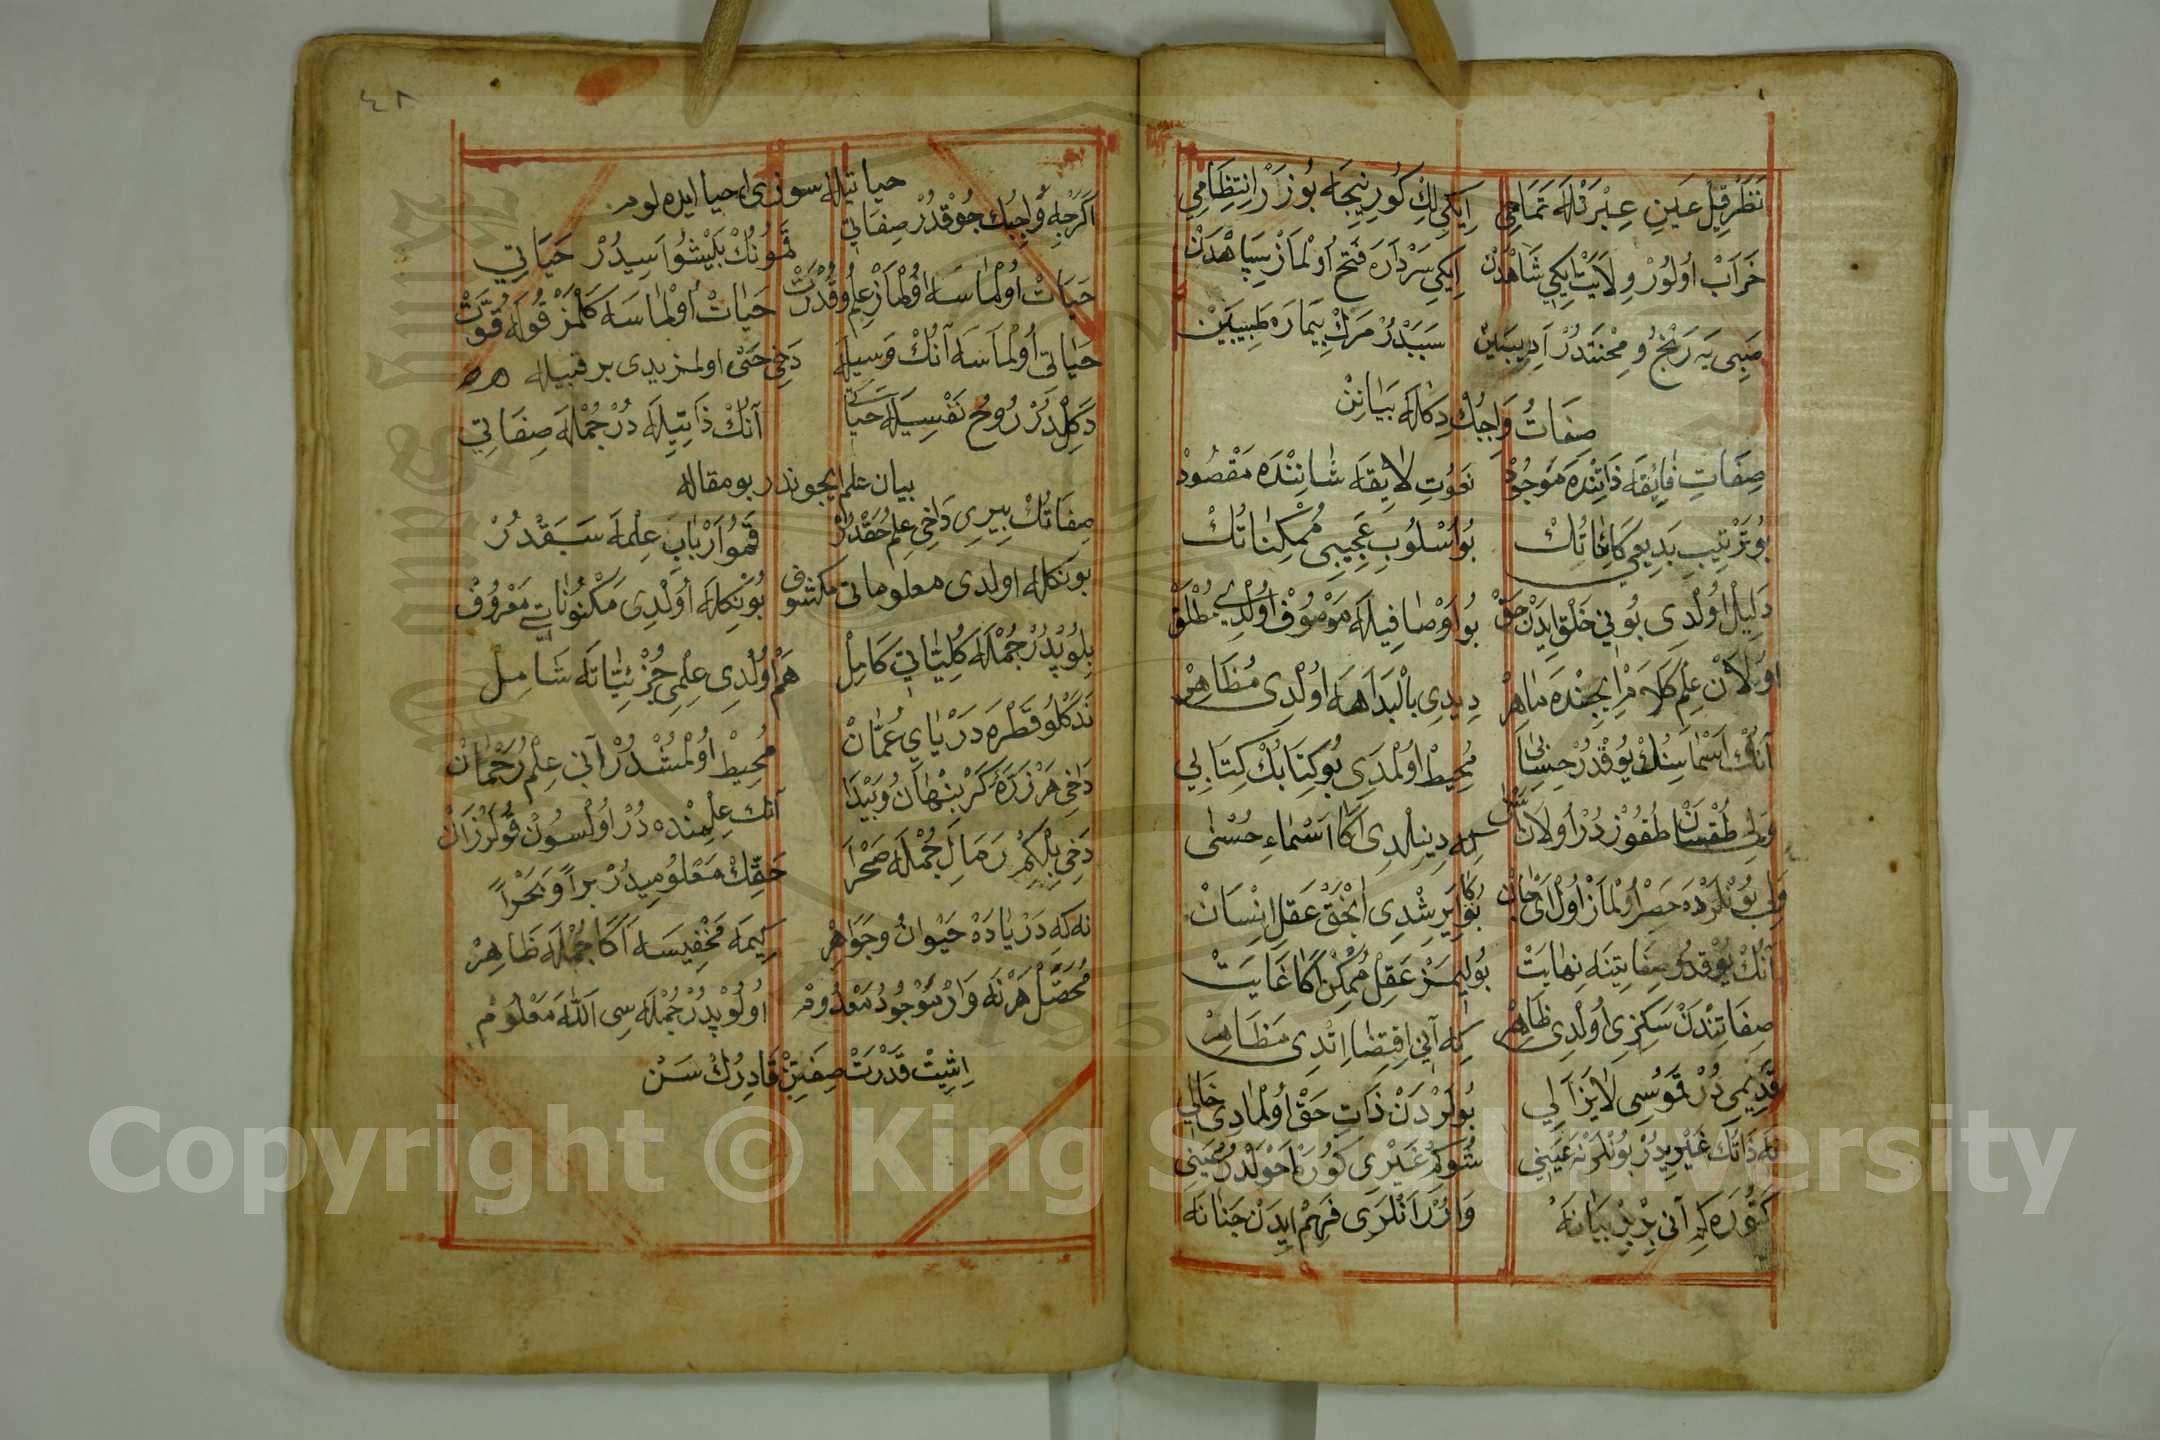 نَظَرْ قِيلْ عَيْنِ عِبْرَتْلَه تَمَامِي اِيكِي لِكْ كُورِ نِيجَه بُوزَرْ اِنْتِظَامِي
خَرَابْ اُولُورْ وِلَايَتْ اِيكِي شَاهْدَنْ اِيكِي سَرْدَارَه فَتْحْ اُولْمَازْ سِپَاهْدَنْ
صَبِي يَه رَنْجُ و مِحْنَتْدُرْ اَدِيبَيْنْ سَبَبْدُرْ مَرْكْ بِيمَارَه طَبِيبَيْنْ
صِفَاتُ وَاجِبُكْ دِكْلَه بَيَانِنْ
صِفَاتِ فَايِقَه ذَاتِنْدَه مَوْجُودْ نَعُوتِ لَايِقَه شَانِنْدَه مَقْصُودْ
بُو تَرْتِيبِ بَدِيعِي كَائِنَاتُكْ بُو اُسْلُوبِ عَجِيبِي مُمْكِنَاتُكْ
دَلِيلْ اُولْدِي بُونِي خَلْقْ اِيدَنْ حَقْ بُو اَوْصَافِيلَه مَوْصُوفْ اُولْدِي مُطْلَقْ
اُولَانْ عِلْمِ كَلَامْ اِيچِنْدَه مَاهِرْ دِيدِي بِالْبَدَاهَه اُولْدِي مُظَاهِرْ
آنُكْ اَسْمَاسِنُكْ يُوقْدُرْ حِسَابِي مُحِيطْ اُولْمَدِي بُو كِتَابُكْ كِتَابِي
وَلِي طُقْسَانْ طُقُوزْدُرْ اُولَانْ كِه دِينِلْدِي اَكَا اَسْمَاءِ حُسْنٰى
وَلِي بُونْلَرْدَه حَصِرْ اُولْمَازْ اُولْ اَيْ جَانْ بُوكَا اِيرِشْدِي اَنْجَقْ عَقْلِ اِنْسَانْ
آنُكْ يُوقْدُرْ صِفَاتِينَه نِهَايَتْ بُولِيمَزْ عَقْلِ مُمْكِنْ اَكَا غَايَتْ
صِفَاتِنْدَنْ سَكِزِي اُولْدِي ظَاهِرْ كِه آنِي اِقْتِضَا اِتْدِي مَظَاهِرْ
قَدِيمِي دُرْ قَمُوسِي لَايَزَالِي بُولَرْدَنْ ذَاتِ حَقْ اُولْمَادِي خَالِي
نَه ذَاتُكْ غَيْرِيدُرْ بُونْلَرْ نَه عَيْنِي
كَتُورَه كِمْ آنِي بِرْ بِرْ بَيَانَه وَارُرْ اَنْلَرِي فَهْمْ اِيدَنْ جَنَانَه
٤٨
حياتيله سوزى احيا ايده لوم
اَكَرْچِه وَاجِبُكْ چُوقْدُرْ صِفَاتِي قَمُونُكْ پَيْشُوَاسِيدُرْ حَيَاتِي
حَيَاتْ اُولْمَاسَه اُولْمَازْ عِلْمُ و قُدْرَتْ حَيَاتْ اُولْمَاسَه كَلْمَزْ قُولَه قُوَّتْ
حَيَاتِي اُولْمَاسَه آنُكْ وَسِيلَه دَخِي حَتّٰى اولمزيدى بر قبيله
دَكِلْدُرْ رُوحُ نَفْسِيلَه حَيَاتِي آنُكْ ذَاتِيلَه دُرْ جُمْلَه صِفَاتِي
بيان علم ايچوندر بو مقاله
صِفَاتُكْ بِيرِي دَاخِي عِلْمِ حَقْدُرْ قَمُو اَرْبَابِ عِلْمَه سَبَقْدُرْ
بونكله اولدى معلوماتى مكشوف بُونِكْلَه اُولْدِي مَكْنُونَاتِي مَعْرُوفْ
بِلُوپْدُرْ جُمْلَه كُلِّيَّاتِي كَامِلْ هَمْ اُولْدِي عِلْمِي جُزْئِيَّاتَه شَامِلْ
نَدَكْلُو قَطْرَه دَرْيَايِ عُمَّانْ مُحِيطْ اُولْمُشْدُرْ آنِي عِلْمِ رَحْمَانْ
دَاخِي هَرْ ذَرَّه كَرْ پِنْهَانُ و پَيْدَا آنك عِلْمِنْدَه دُرْ اُولْسُونْ
دَخِي بِلْكِمْ رَمَالِ جُمْلَه صَحْرَا حَقِّكْ مَعْلُومِيدُرْ بَرًّا وَبَحْرًا
نه كه دَرْيَادَه حَيْوَانُ و جَوَاهِرْ كِيمَه مَخْفِيسَه اَكَا جُمْلَه ظَاهِرْ
مُحَصَّلْ هَرْ نَه وَارْ مَوْجُودُ مَعْدُومْ اُولُوپْدُرْ جُمْلَه سِي اَللّٰهَ مَعْلُومْ
اِشِيتْ قُدْرَتْ صِفَتِنْ قَادِرُكْ سَنْ
Copyright © King Saud University